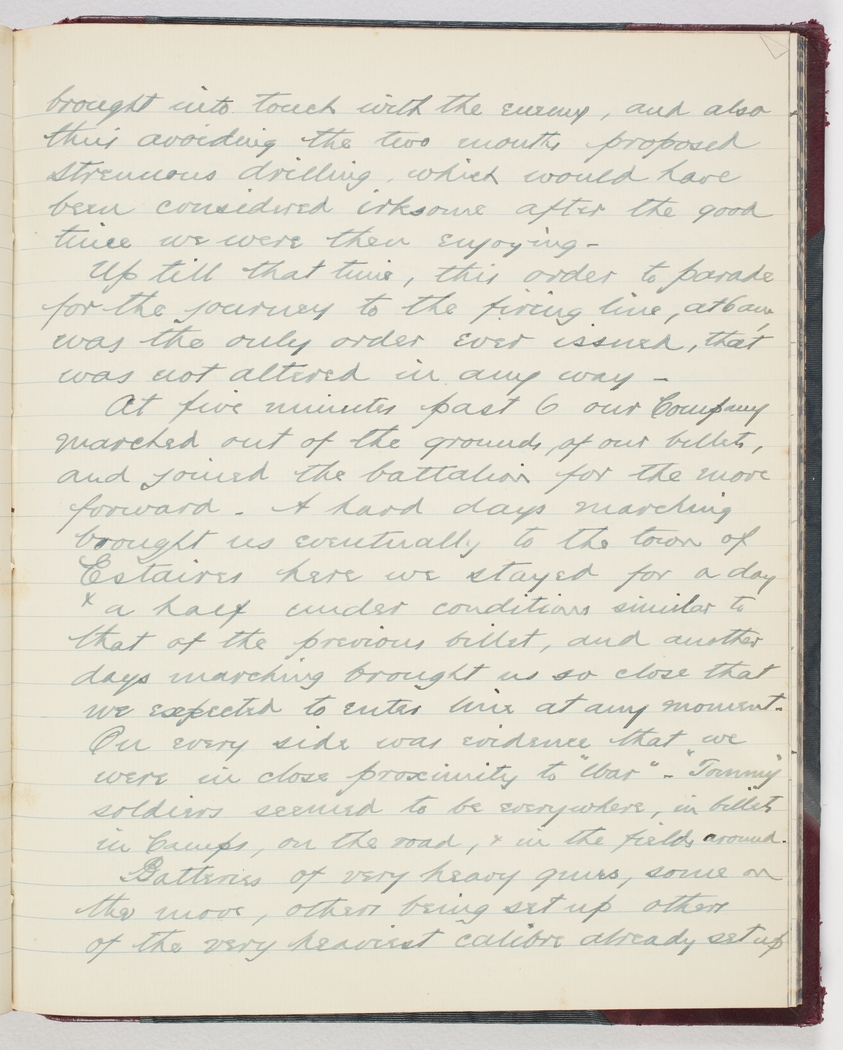 brought into touch with the enemy, and also
thus avoiding the two months proposed
strenuous drilling. which would have
been considered irksome after the good
time we were then enjoying-
Up till that time, this order to parade
for the journey to the firing line, at 6 am,
was the only order ever issued, that
was not altered in any way -
At five minutes past 6 our Company
marched out of the grounds, of our billets,
and joined the battalion for the move
forward. A hard days marching
brought us eventually to the town of
Estaires here we stayed for a day
x a half under conditions similar to
that of the previous billet, and another
days marching brought us so close that
we expected to enter line at any moment.
On every side was evidence that we
were in close proximity to "War" - "Tommy"
soldiers seemed to be everywhere, in billets
in Camps, on the road, x in the fields around.
Batteries of very heavy guns, some on
the move, others being set up others
of the very heaviest calibre already set up